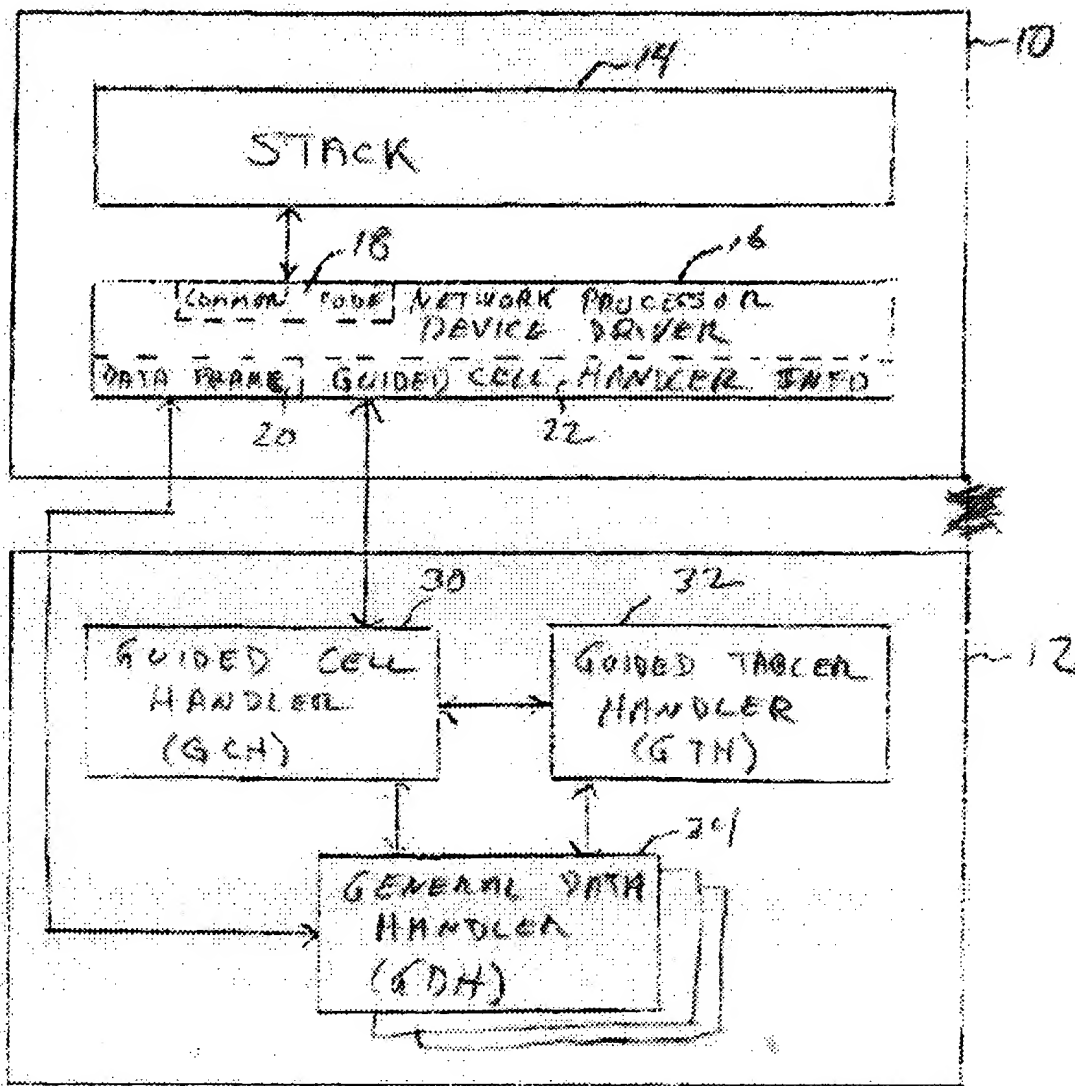 10
14
STACK
18
16
COMMON CODE
NETWORK PROCESSOR
DEVICE DRIVER
DATA FRAME
GUIDED CELL, HANDLER INFO
20
22
30
32
12
GUIDED CELL
HANDLER
(GCH)
GUIDED TABLER
HANDLER
(GTH)
34
GENERAL DATA
HANDLER
(GDH)